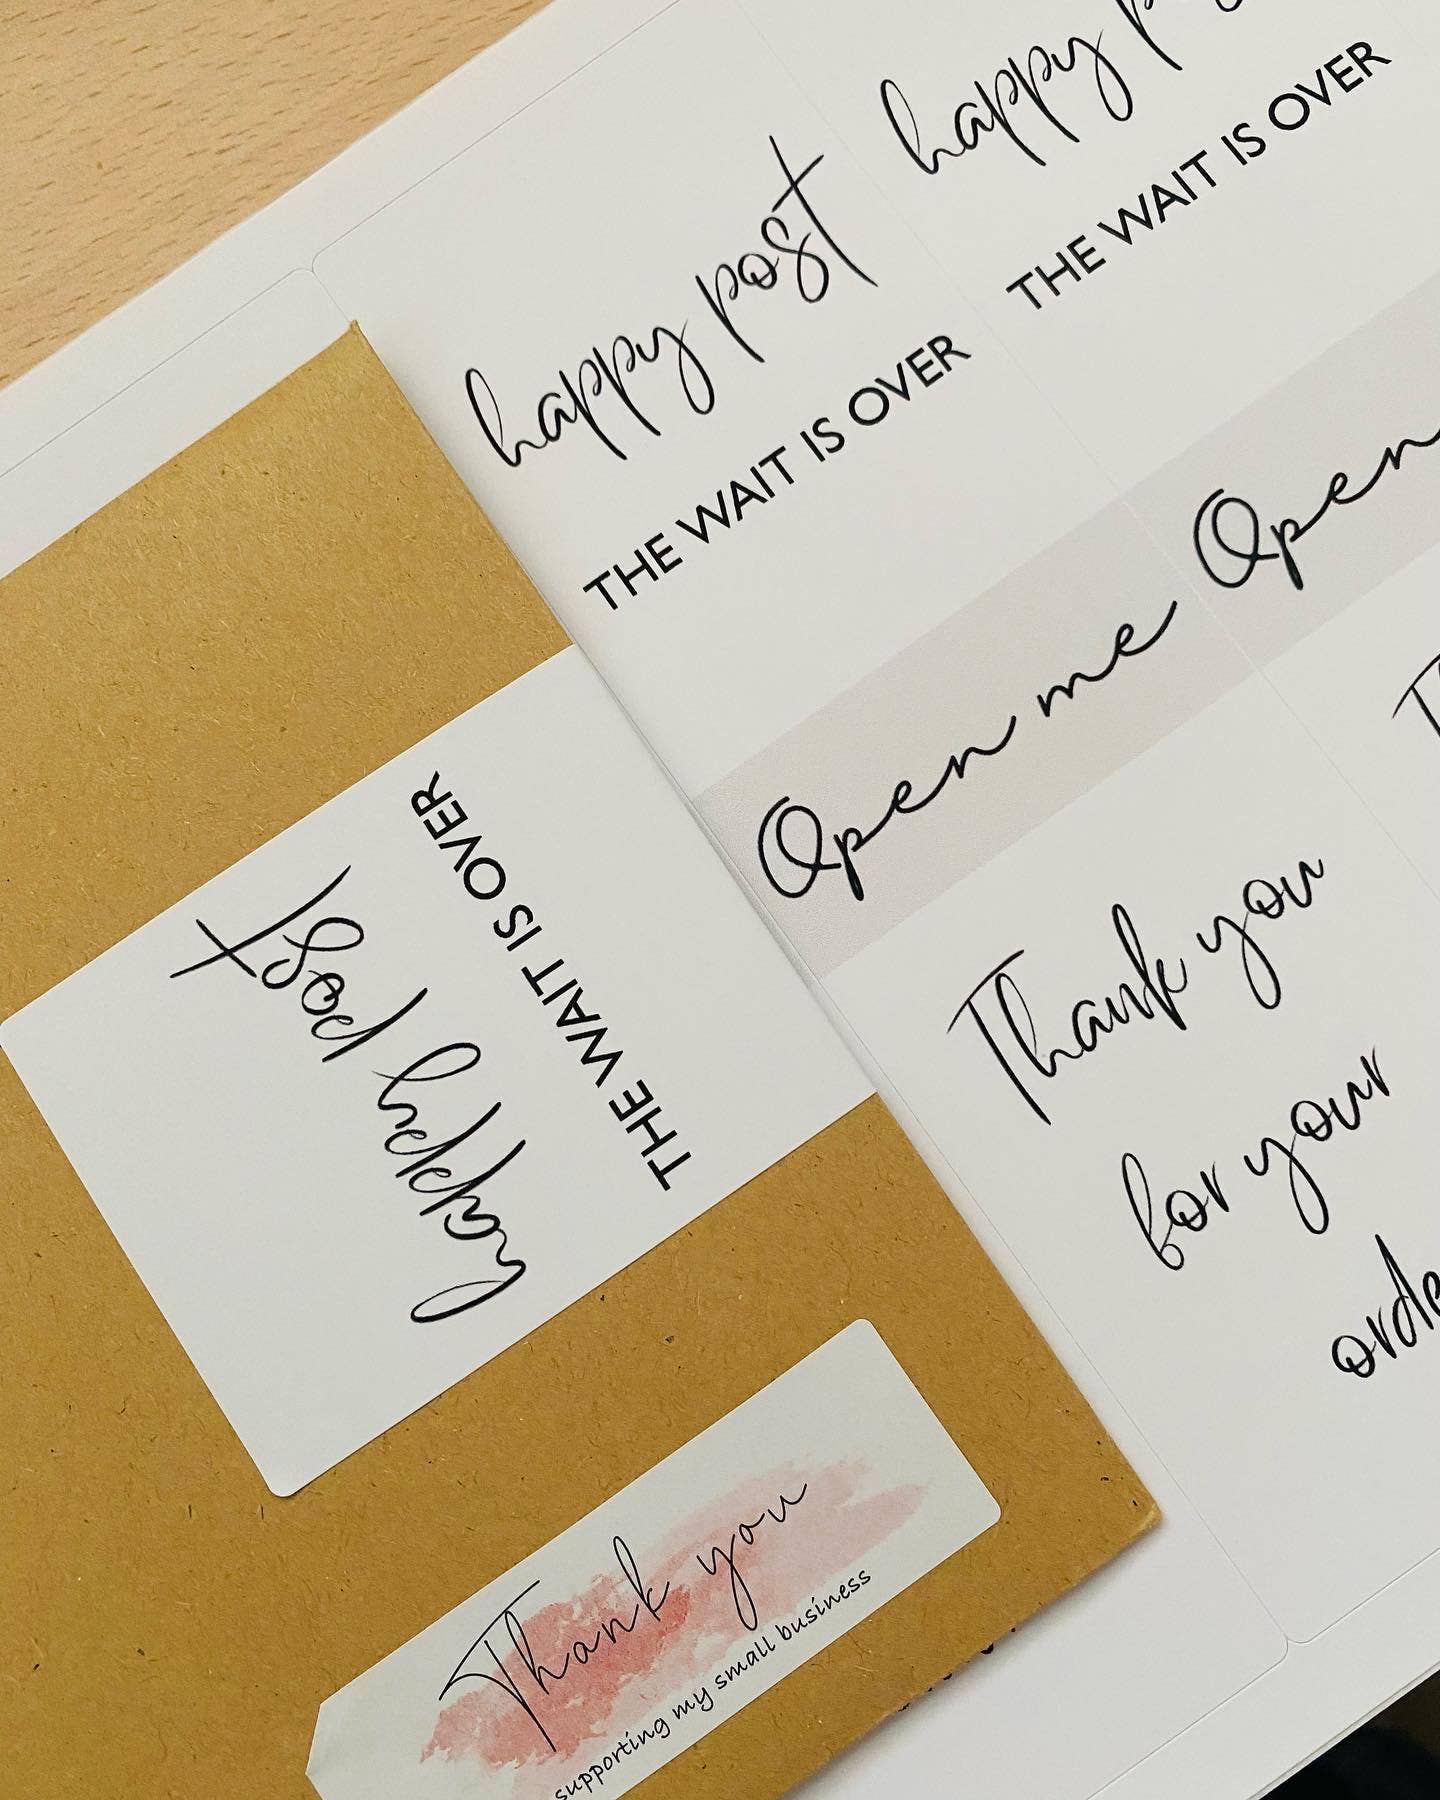 happy post
THE WAIT IS OVER
happy
THE WAIT IS OVER
Open me
Open
Thank you
for your
happy post
THE WAIT IS OVER
Thank you
supporting my small business